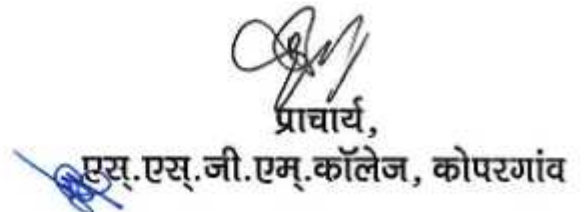 प्राचार्य,
एस्.एस्.जी.एम्.कॉलेज, कोपरगांव